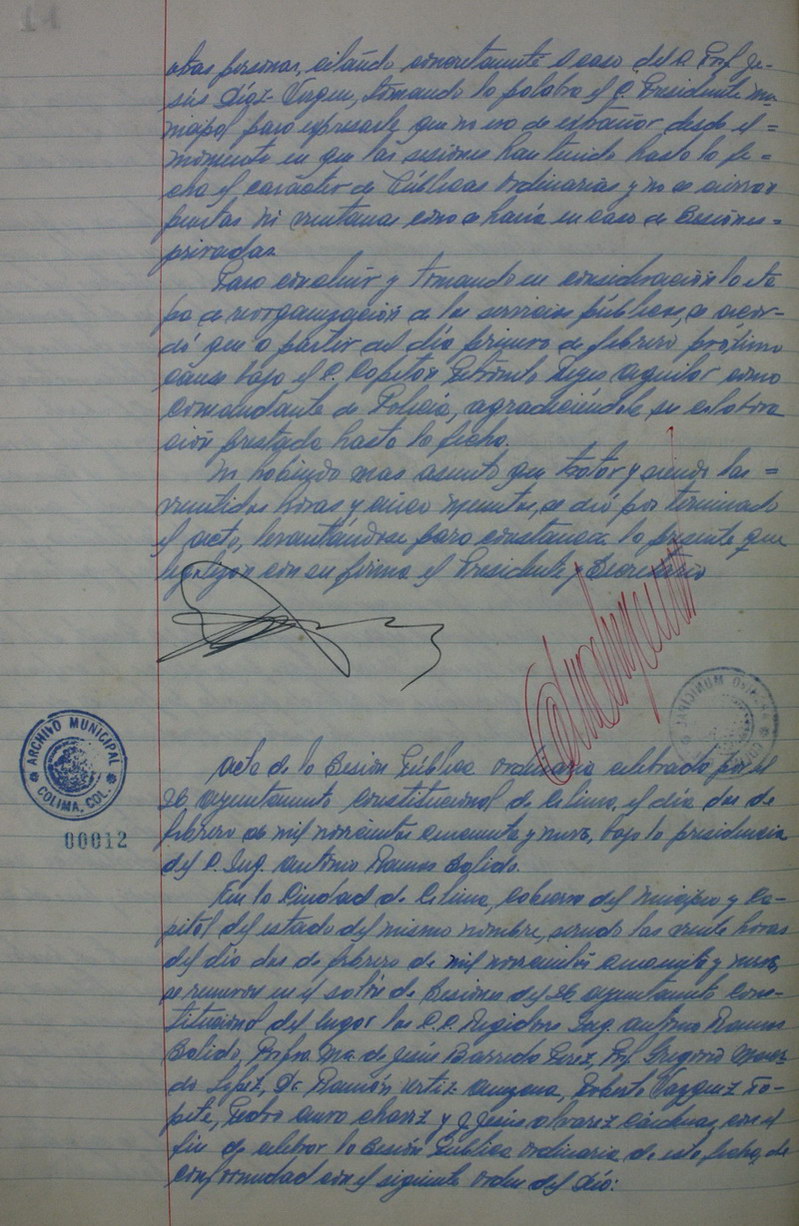 otras personas, citando concretamente el caso del C. Prof. Je-
sús Díaz Virgen, tomando la palabra el C. Presidente mu-
nicipal para expresarle que no era de extrañar desde el =
momento en que las sesiones han tenido hasta la fe-
cha el carácter de Públicas Ordinarias y no se cierran
puertas ni ventanas como se haría en caso de Sesiones =
privadas.
Para concluir y tomando en consideración la eta
pa de reorganización de los servicios públicos, se acor-
dó que a partir del día primero de febrero próximo
cause baja el C. Capitán Petronilo Reyes Aguilar como
Comandante de Policía, agradeciéndole su colabora
ción prestada hasta la fecha.
No habiendo mas asunto que tratar y siendo las =
veintidos horas y cinco minutos, se dió por terminado
el acto, levantándose para constancia la presente que
legalizan con su firma el Presidente y Secretario
ARCHIVO MUNICIPAL
COLIMA, COL.
00012
Acta de la Sesión Pública ordinaria celebrada por el
26 ayuntamiento Constitucional de Colima, el día dos de
febrero de mil novecientos cincuenta y nueve, bajo la presidencia
del C. Ing. Antonio Ramos Salido.
En la Ciudad de Colima, Cabecera del municipio y Ca-
pital del estado del mismo nombre, siendo las veinte horas
del día dos de febrero de mil novecientos cincuenta y nueve,
se reunieron en el salón de Sesiones del 26 ayuntamiento Cons-
titucional del lugar los C.C. Regidores Ing. Antonio Ramos
Salido, Profra. Ma. de Jesús Barreda Pérez, Prof. Gregorio
López, Dr. Ramón Ortiz, Roberto Vázquez Ta-
pite, Pedro y J. Jesús Alvarez Cárdenas, con el
fin de celebrar la Sesión Pública ordinaria de esta fecha, de
conformidad con el siguiente orden del día: